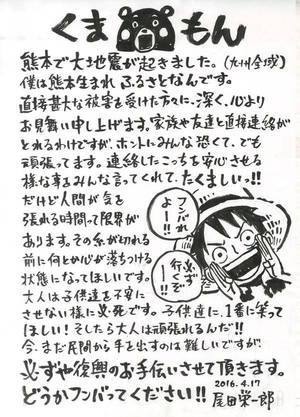 くま もん
熊本で大地震が起きました。(九州全域)
僕は熊本生まれ ふるさとなんです。
直接甚大な被害を受けた方々に、深く、心より
お見舞い申し上げます。家族や友達と直接連絡が
とれるわけですが、ホントにみんな恐くて、でも
頑張ってます。連絡したこっちを安心させる
様な事をみんな言ってくれて、たくましいっ!!
だけど人間が気を
張れる時間って限界が
あります。その糸が切れる
前に何とか心が落ちつける
状態になってほしいです。
大人は子供達を不安に
させない様に必死です。子供達に、1番に笑って
ほしい!そしたら大人は頑張れるんだ!!
今、まだ民間から手を出すのは難しいですが、
必ずや復興のお手伝いさせて頂きます。
どうかフンバってください!!
フンバれよーー!!
必ず行くぞーー!!
2016.4.17
尾田栄一郎